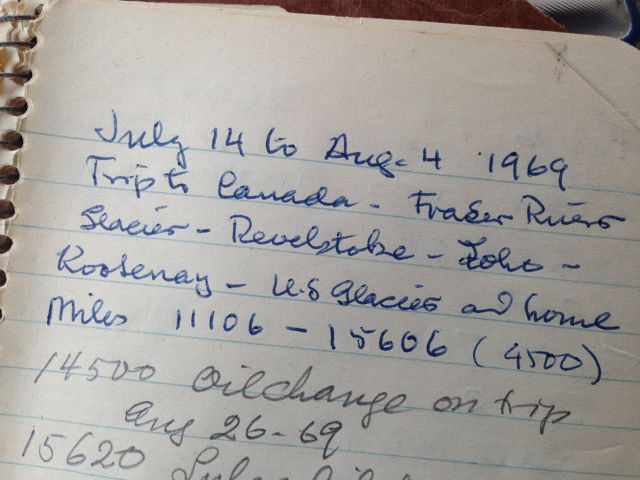 July 14 to Aug. 4 1969
Trip to Canada - Fraser River
Glacier - Revelstoke - Yoho -
Kootenay - U.S Glacier and home
Miles 11106 - 15606 (4500)
14500 Oil change on trip
Aug 26-69
15620